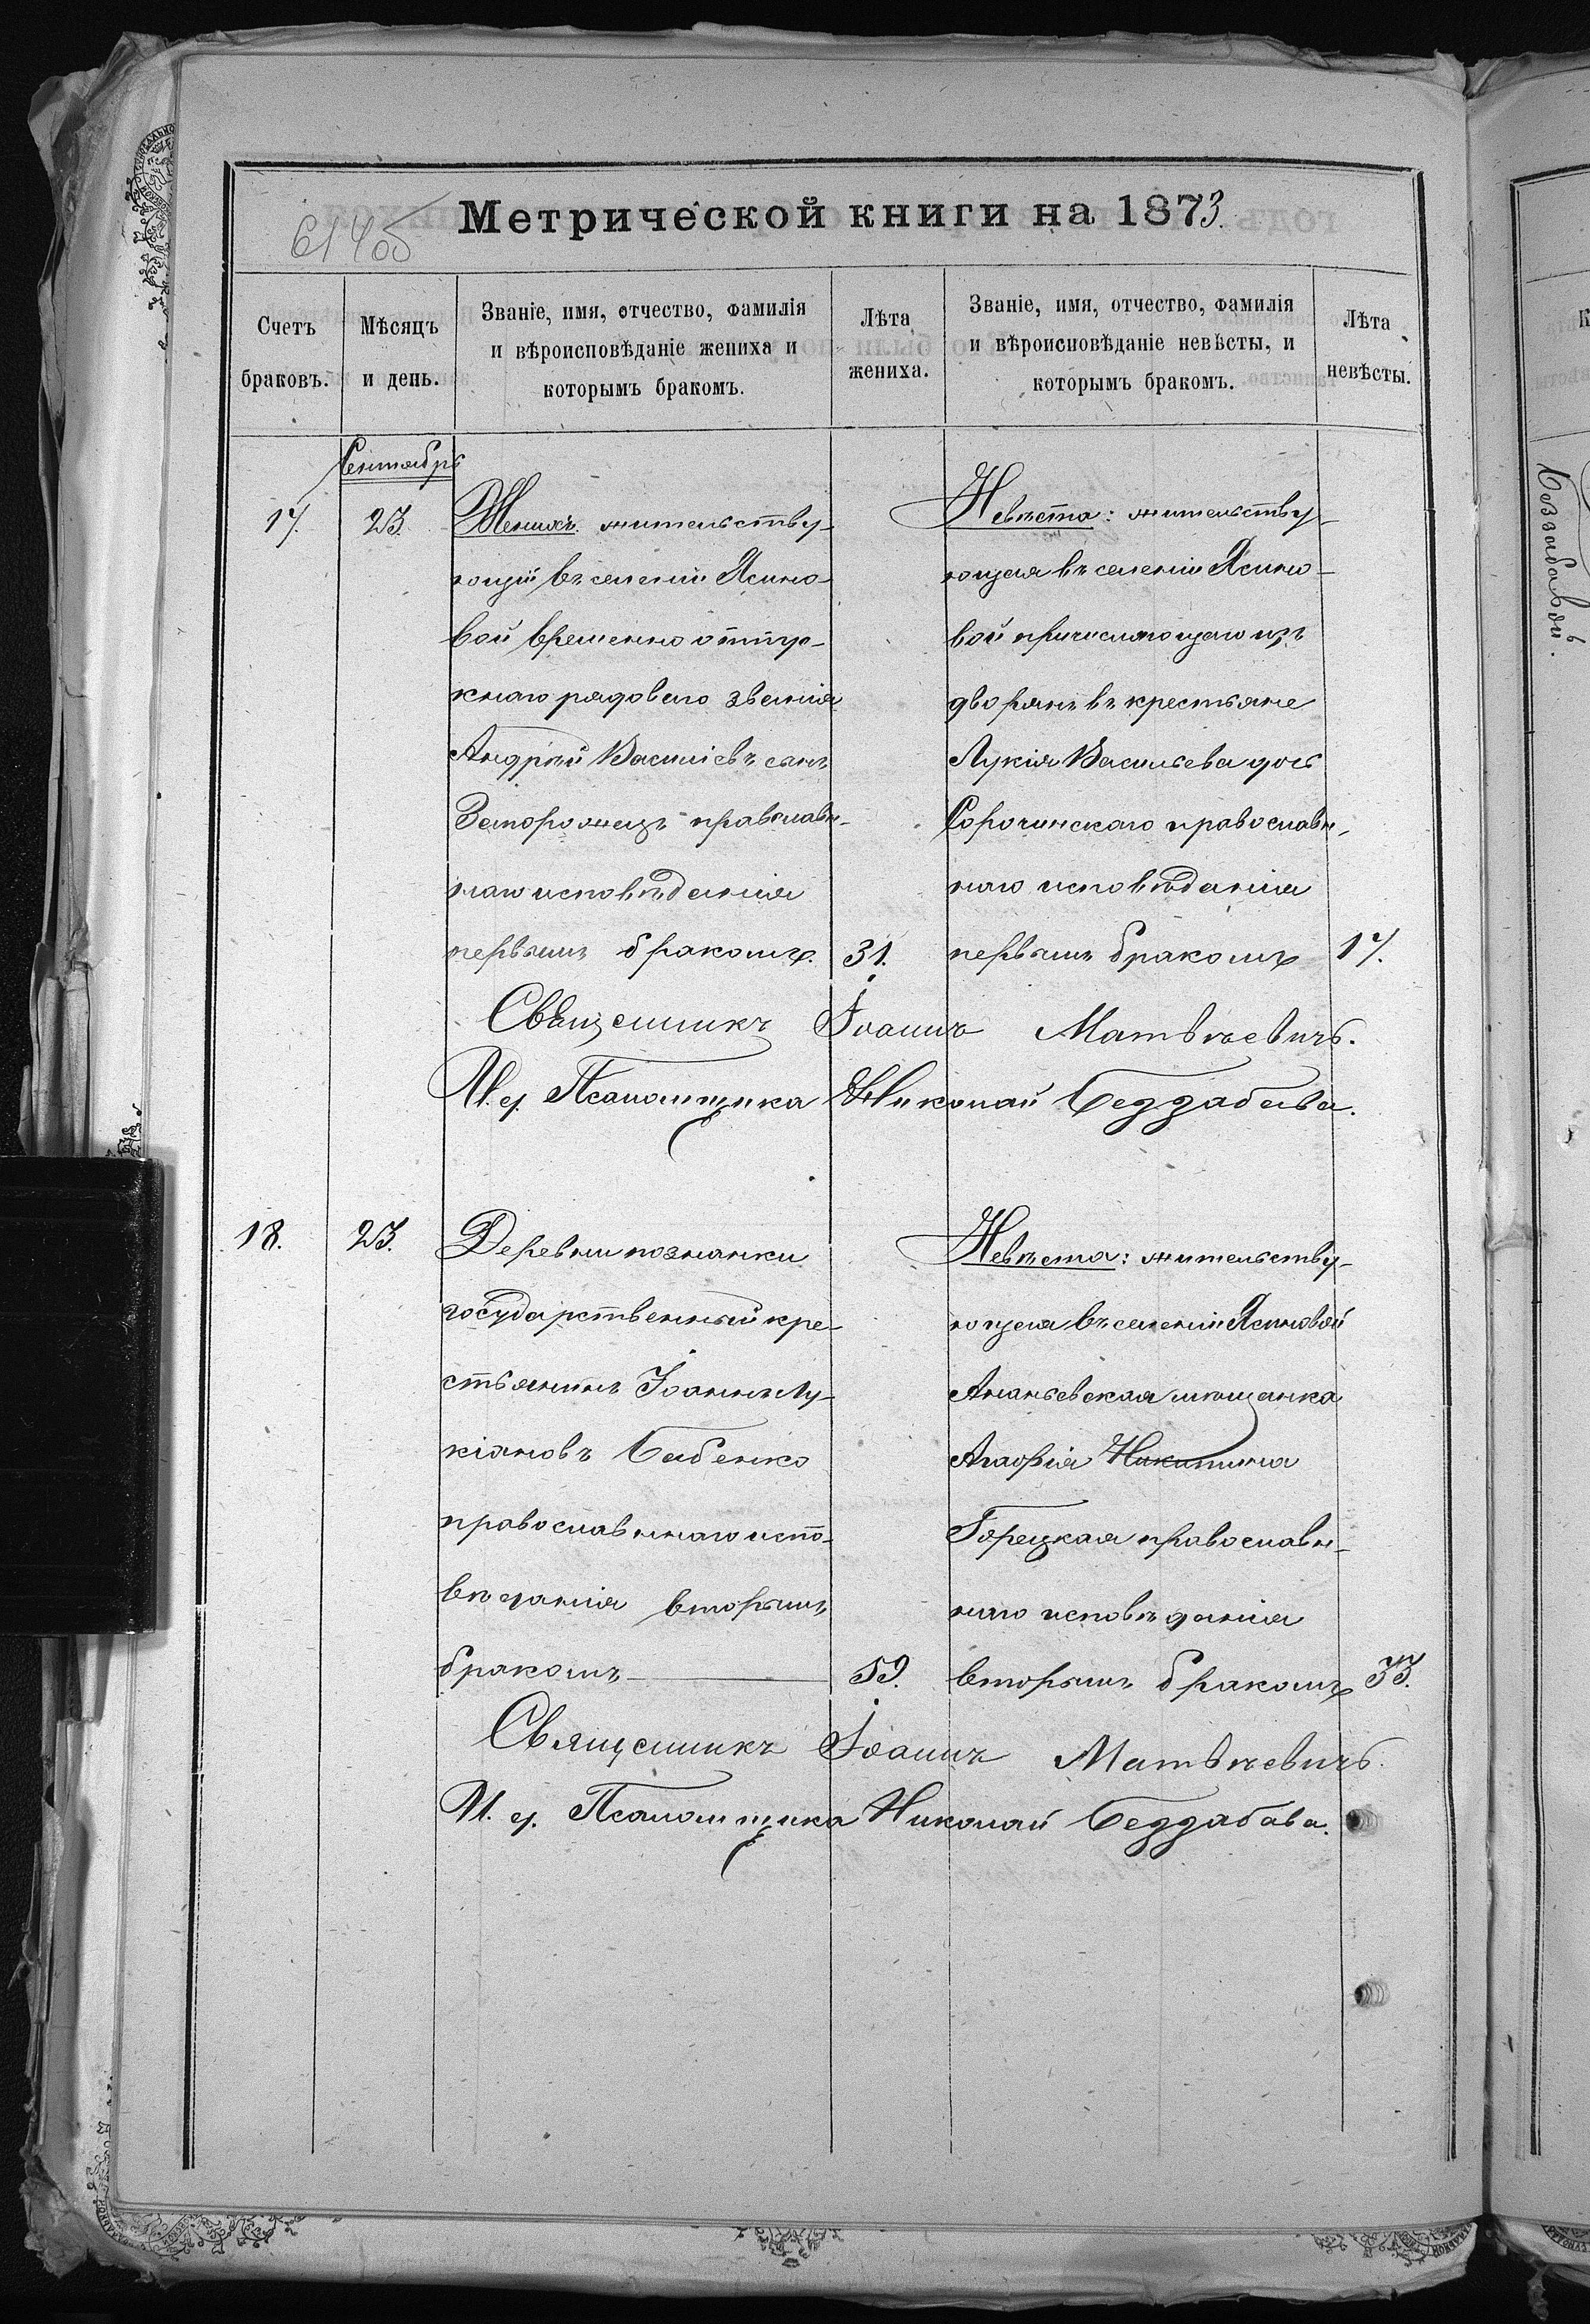 614 об
Метрической книги на 1873.
Счетъ браковъ.
Мѣсяцъ и день.
Званіе, имя, отчество, фамилія
и вѣроисповѣданіе жениха и
которымъ бракомъ.
Лѣта
жениха.
Званіе, имя, отчество, фамилія
и вѣроисповѣданіе невѣсты, и
которымъ бракомъ.
Лѣта
невѣсты.
Сентябрь
17. 23.
Женихъ жительству-
ющій въ селеніи Ясино-
вой временно отпу-
кнаго рядоваго званія
Андрей Василіевъ сынъ
Запорожецъ православн-
наго исповѣданія
первымъ бракомъ. 31.
Невѣста: жительству-
ющая въ селеніи Ясино-
вой причисляющаго изъ
дворянъ въ крестьяне
Лукія Васильева дочь
Сорочинскаго православн-
наго исповѣданія
первымъ бракомъ 17.
Священникъ Іоаннъ Матвѣевичъ.
И. д. Псаломщика Николай Беззабава.
18. 23.
Деревни познанки
государственный кре-
стьянинъ Іоаннъ Лу-
кіановъ Бабенко
православнаго испо-
вѣданія вторымъ
бракомъ 59.
Невѣста: жительству-
ющая въ селеніи Ясиновой
Ананьевская мѣщанка
Агафія Никитина
Горецкая православн-
наго исповѣданія
вторымъ бракомъ 33.
Священникъ Іоаннъ Матвѣевичъ.
И. д. Псаломщика Николай Беззабава.
Беззабавой.